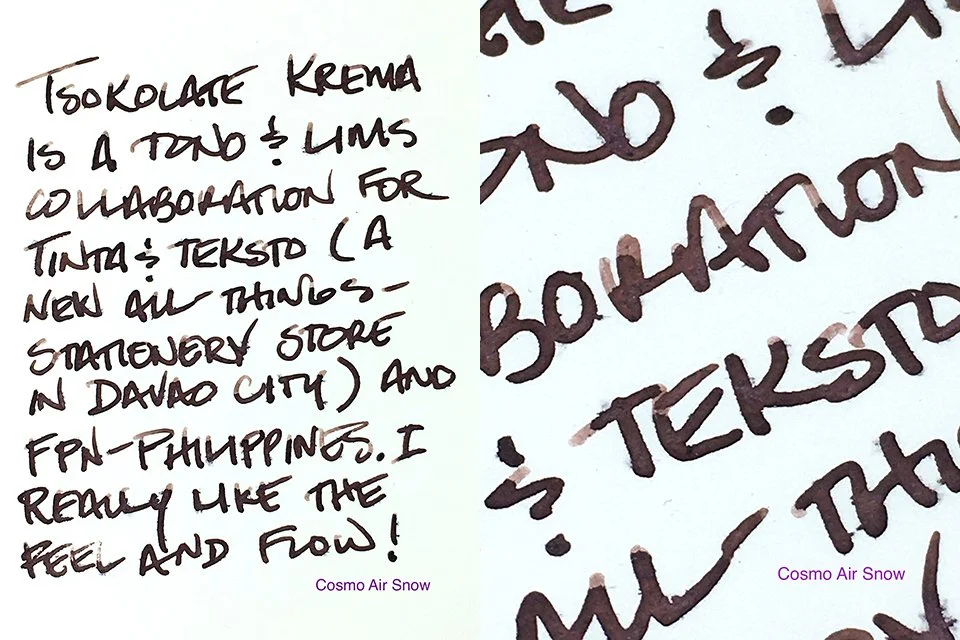 TSOKOLATE KREMA
IS A TONO & LIMS
COLLABORATION FOR
TINTA & TEKSTO (A
NEW ALL THINGS-
STATIENERY STORE
IN DAVAO CITY) AND
FPN-PHILIPPINES. I
REALLY LIKE THE
FEEL AND FLOW!
Cosmo Air Snow
& LI
ONO
BORATION
& TEKSTO
ALL THI
Cosmo Air Snow